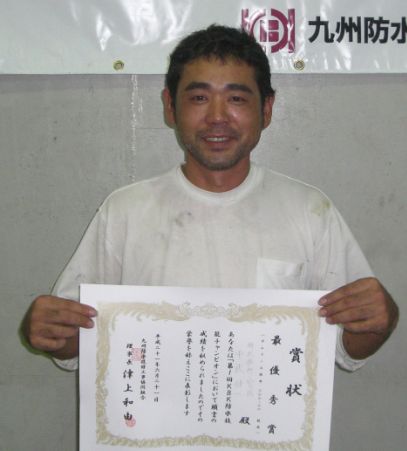 九州防水
賞状
最優秀賞
殿
あなたは「第1回KBK防水技
能チャンピオン」において頭書の
成績を収められましたのでその
栄誉を称えここに表彰します
平成二十一年六月二十一日
九州防水改修工事協同組合
理事長 津上和由